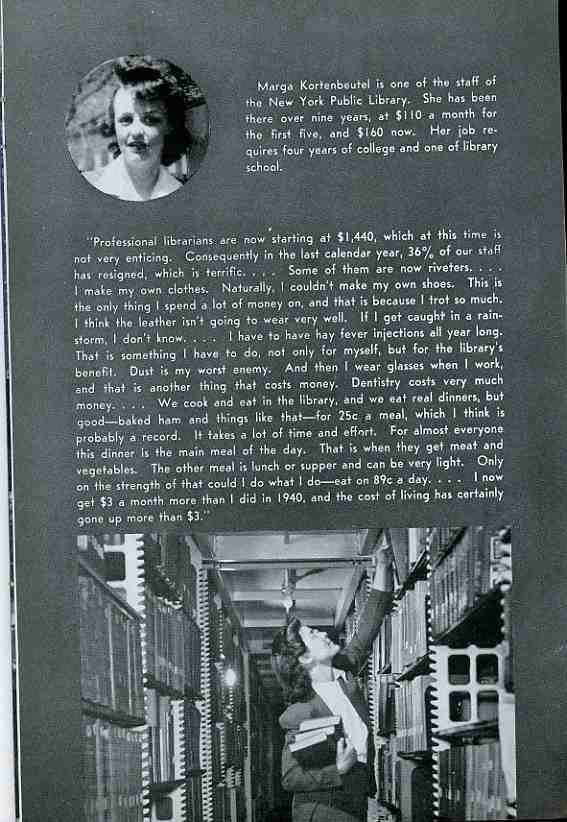 Marga Kortenbeutel is one of the staff of
the New York Public Library. She has been
there over nine years, at $110 a month for
the first five, and $160 now. Her job re-
quires four years of college and one of library
school.
"Professional librarians are now starting at $1,440, which at this time is
not very enticing. Consequently in the last calendar year, 36% of our staff
has resigned, which is terrific. . . . Some of them are now riveters. . . .
I make my own clothes. Naturally, I couldn't make my own shoes. This is
the only thing I spend a lot of money on, and that is because I trot so much.
I think the leather isn't going to wear very well. If I get caught in a rain-
storm, I don't know. . . . I have to have hay fever injections all year long.
That is something I have to do, not only for myself, but for the library's
benefit. Dust is my worst enemy. And then I wear glasses when I work,
and that is another thing that costs money. Dentistry costs very much
money. . . . We cook and eat in the library, and we eat real dinners, but
good—baked ham and things like that—for 25c a meal, which I think is
probably a record. It takes a lot of time and effort. For almost everyone
this dinner is the main meal of the day. That is when they get meat and
vegetables. The other meal is lunch or supper and can be very light. Only
on the strength of that could I do what I do—eat on 89c a day. . . . I now
get $3 a month more than I did in 1940, and the cost of living has certainly
gone up more than $3."